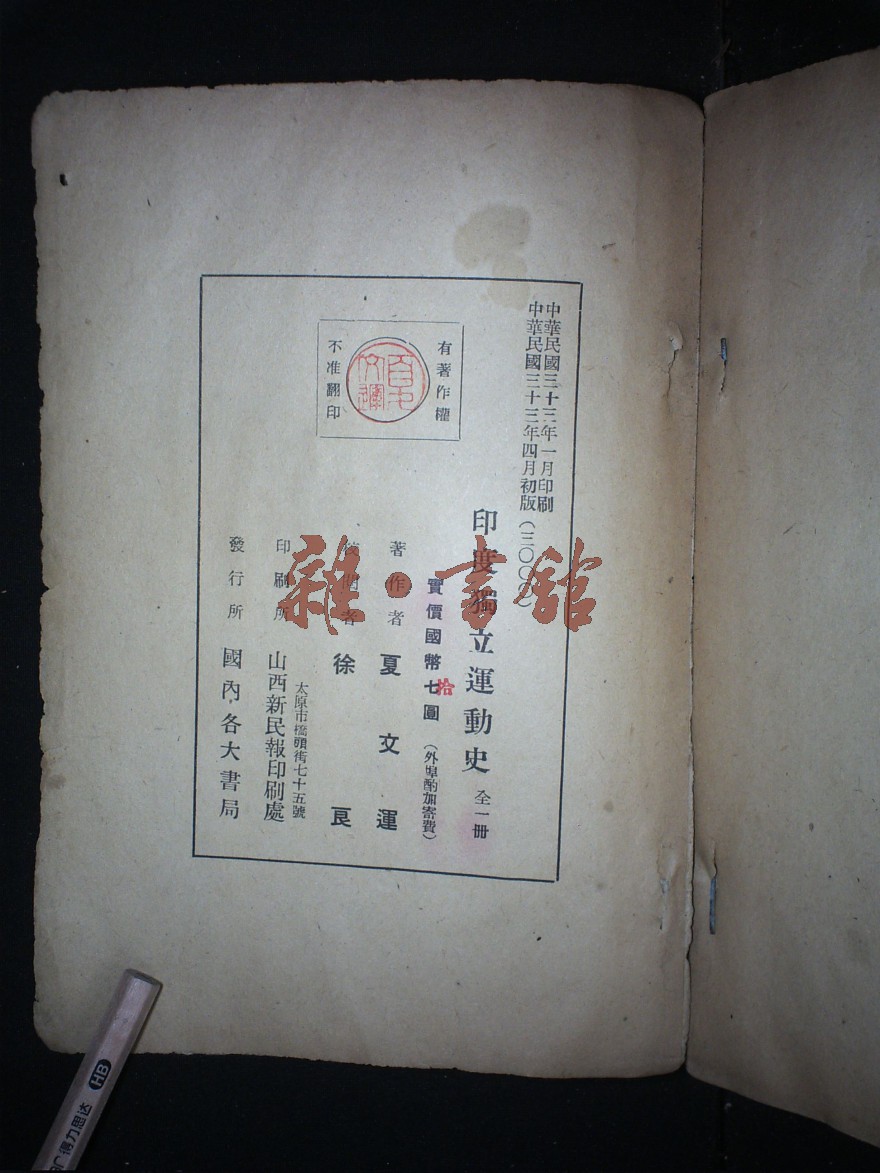 中華民國三十三年一月印刷
中華民國三十三年四月初版(三〇〇〇)
印度獨立運動史 全一冊
實價國幣七圓 (外埠酌加寄費)
拾
著作者 夏文運
校閱者 徐良
太原市橋頭街七十五號
印刷所 山西新民報印刷處
發行所 國內各大書局
有著作權
不准翻印
雜·書館
HB
得力思达